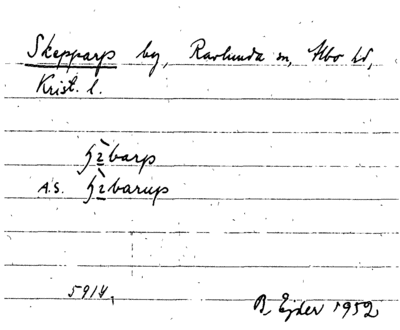 Skepparp by, Ravlunda sn, Albo hd,
Krist. l.
ʃɪ̀barp
A.S. ʃɪ̀barup
5914,
B. Ejder 1952